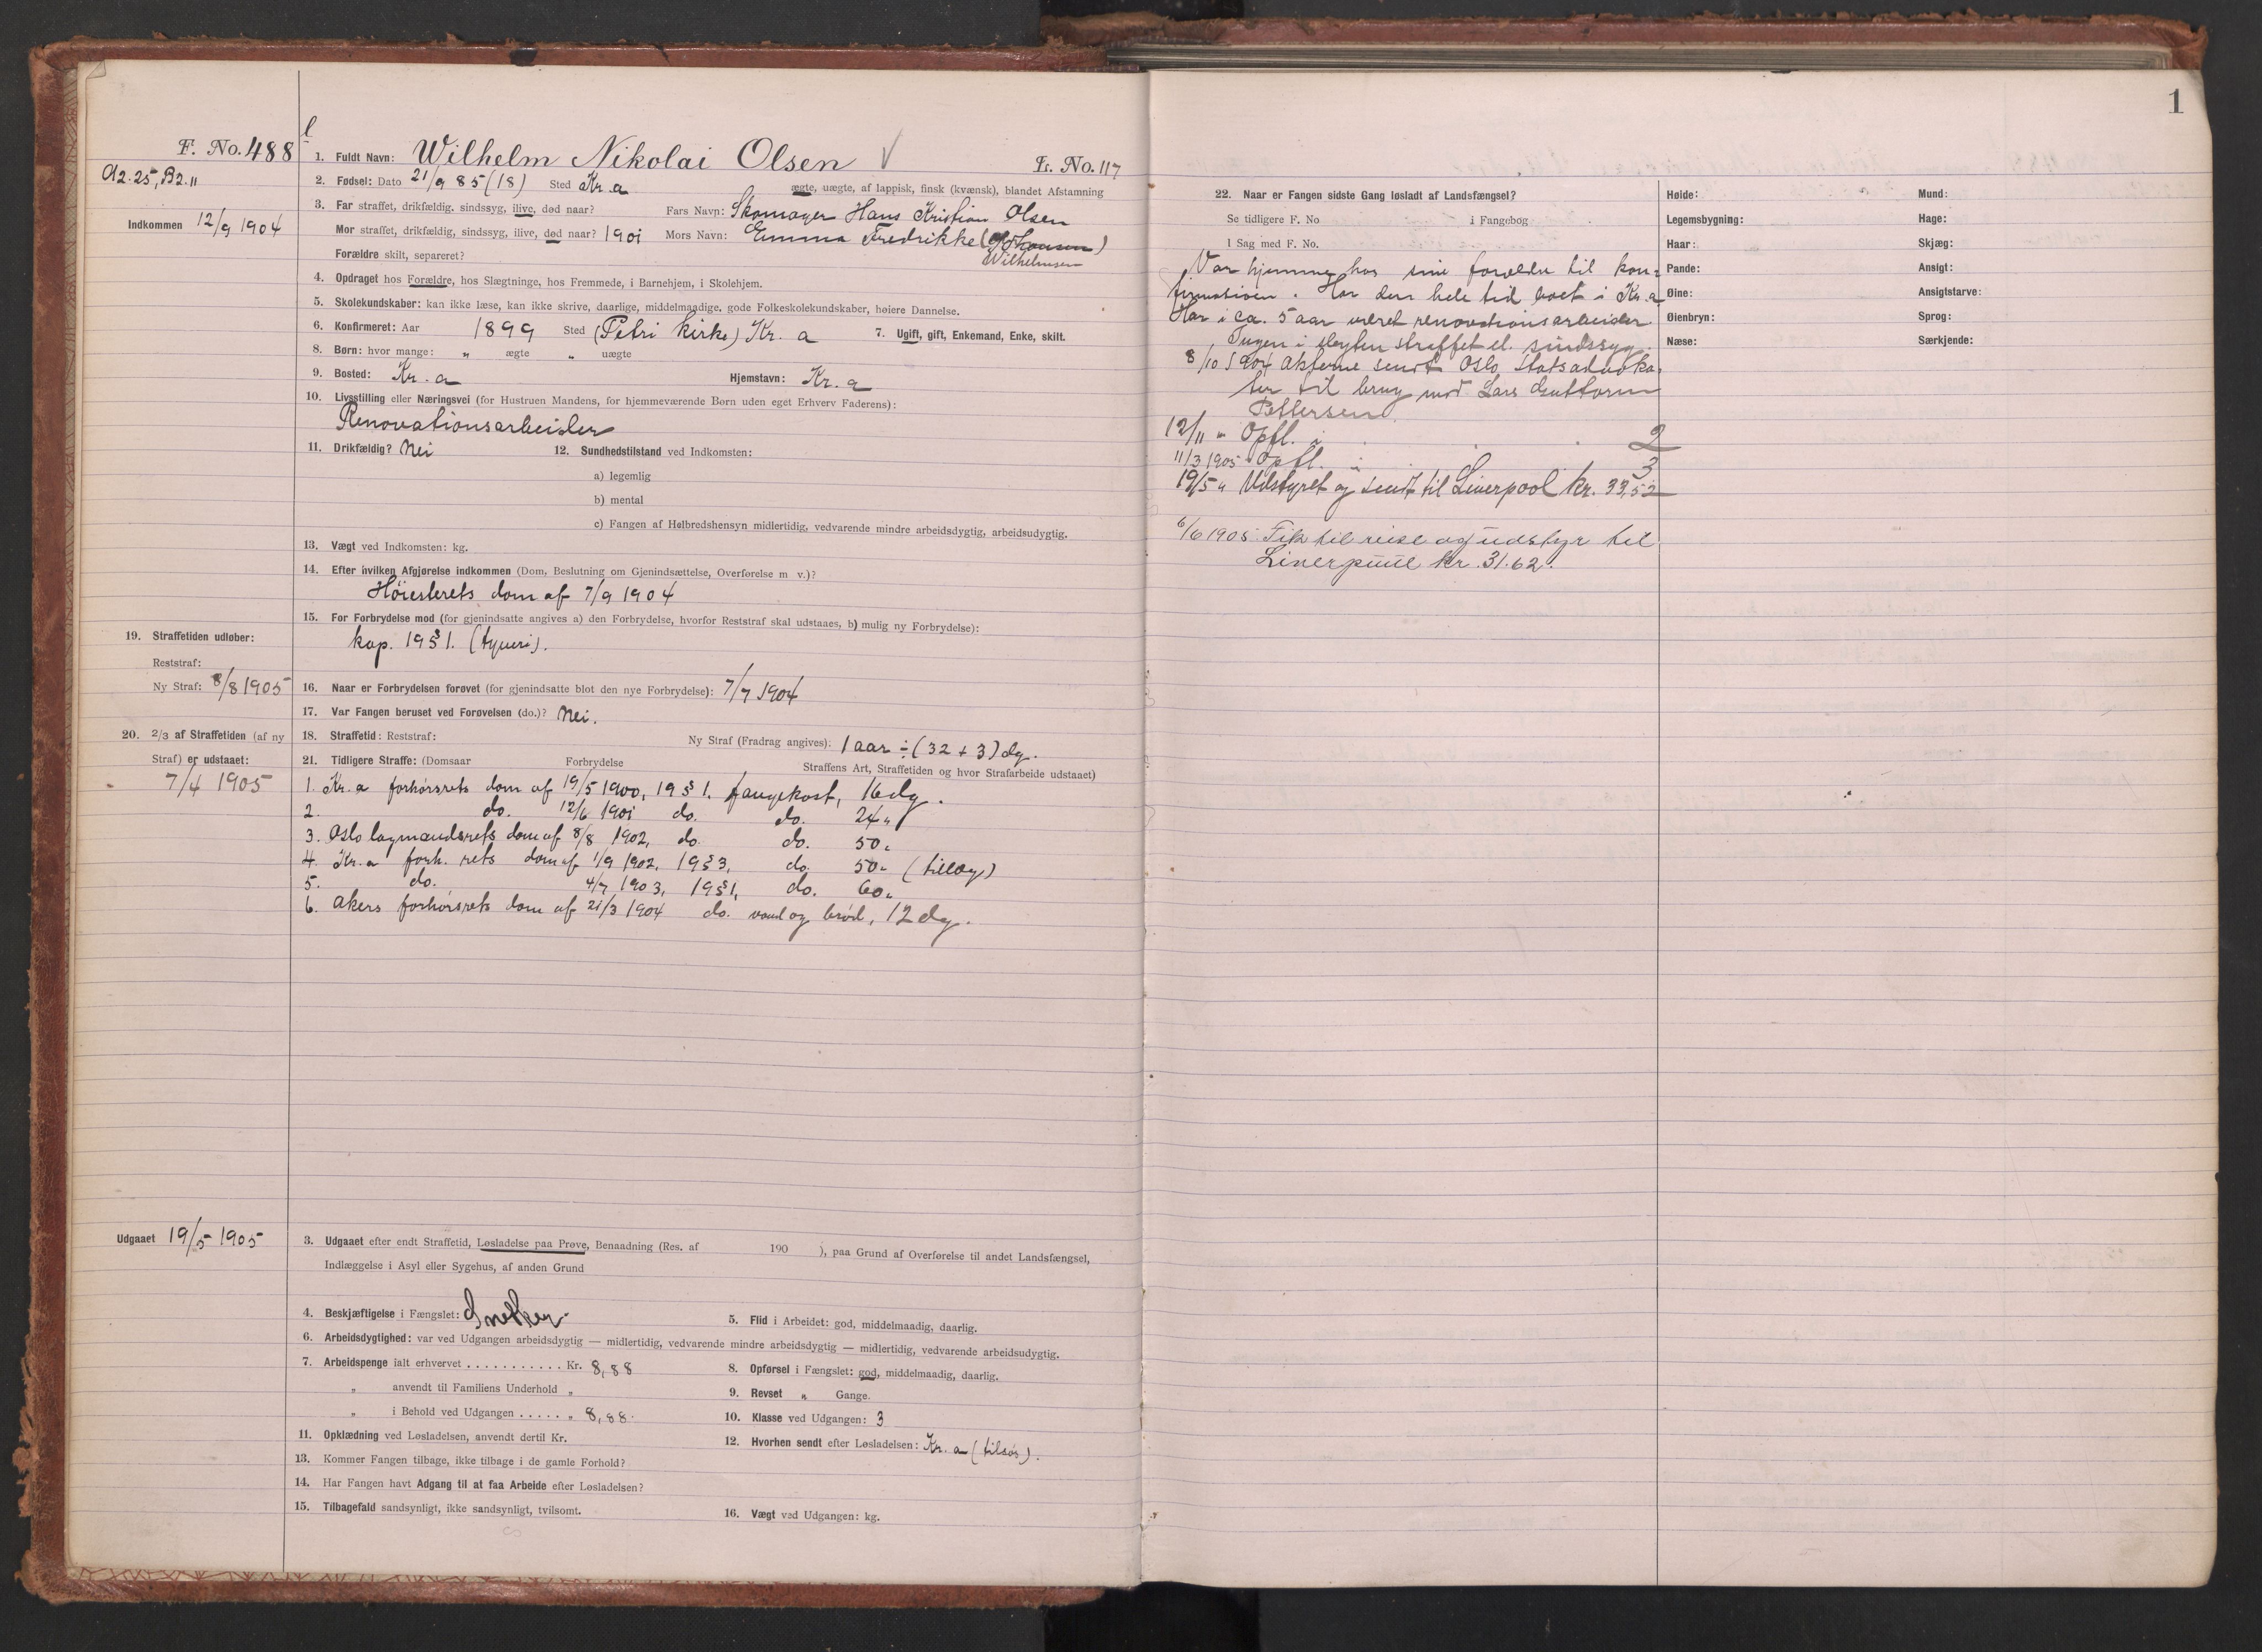 F. No. 488
A2.25, B2.11
Indkommen 12/9 1904
1. Fuldt Navn: Wilhelm Nikolai Olsen L. No. 117
2. Fødsel: Dato 21/9 85 (18) Sted Kr.a ægte, uægte, af lappisk, finsk (kvænsk), blandet Afstamning
3. Far straffet, drikfældig, sindssyg, ilive, død naar? Fars Navn: Skomager Hans Kristian Olsen
Mor straffet, drikfældig, sindssyg, ilive, død naar? 1901 Mors Navn: Emma Fredrikke (Johansen)
Wilhelmsen
Forældre skilt, separeret?
4. Opdraget hos Forældre, hos Slægtninge, hos Fremmede, i Barnehjem, i Skolehjem.
5. Skolekundskaber: kan ikke læse, kan ikke skrive, daarlige, middelmaadige, gode Folkeskolekundskaber, høiere Dannelse.
6. Konfirmeret: Aar 1899 Sted (Petri kirke) Kr. a 7. Ugift, gift, Enkemand, Enke, skilt.
8. Børn: hvor mange: " ægte " uægte
9. Bosted: Kr. a Hjemstavn: Kr. a
10. Livsstilling eller Næringsvei (for Hustruen Mandens, for hjemmeværende Børn uden eget Erhverv Faderens):
Renovationsarbeider
11. Drikfældig? Nei 12. Sundhedstilstand ved Indkomsten:
a) legemlig
b) mental
c) Fangen af Helbredshensyn midlertidig, vedvarende mindre arbeidsdygtig, arbeidsudygtig.
13. Vægt ved Indkomsten: kg.
14. Efter hvilken Afgjørelse indkommen (Dom, Beslutning om Gjenindsættelse, Overførelse m v.)?
Høiesterets dom af 7/9 1904
15. For Forbrydelse mod (for gjenindsatte angives a) den Forbrydelse, hvorfor Reststraf skal udstaaes, b) mulig ny Forbrydelse):
kap. 19 § 1. (tyveri).
19. Straffetiden udløber:
Reststraf:
Ny Straf: 8/8 1905
16. Naar er Forbrydelsen forøvet (for gjenindsatte blot den nye Forbrydelse): 7/7 1904
17. Var Fangen beruset ved Forøvelsen (do.)? Nei.
20. 2/3 af Straffetiden (af ny
Straf) er udstaaet:
7/4 1905
18. Straffetid: Reststraf: Ny Straf (Fradrag angives): 1 aar ÷ (32 + 3) dg.
21. Tidligere Straffe: (Domsaar Forbrydelse Straffens Art, Straffetiden og hvor Strafarbeide udstaaet)
1. Kr.a forhørsrets dom af 19/5 1900, 19 § 1. fangekost, 16 dg.
2. do. 12/6 1901 do. do. 24 "
3. Oslo lagmandsrets dom af 8/8 1902, do. do. 50 "
4. Kr.a forh. rets dom af 1/9 1902, 19 § 3, do. 50 " (tillæg)
5. do. 4/7 1903, 19 § 1, do. 60 "
6. Akers forhørsrets dom af 21/3 1904 do. vand og brød, 12 dg.
Udgaaet 19/5 1905
3. Udgaaet efter endt Straffetid, Løsladelse paa Prøve, Benaadning (Res. af 190 ), paa Grund af Overførelse til andet Landsfængsel,
Indlæggelse i Asyl eller Sygehus, af anden Grund
4. Beskjæftigelse i Fængslet: Snekker. 5. Flid i Arbeidet: god, middelmaadig, daarlig.
6. Arbeidsdygtighed: var ved Udgangen arbeidsdygtig — midlertidig, vedvarende mindre arbeidsdygtig — midlertidig, vedvarende arbeidsudygtig.
7. Arbeidspenge ialt erhvervet . . . . . . . . . . . Kr. 8,88 8. Opførsel i Fængslet: god, middelmaadig, daarlig.
" anvendt til Familiens Underhold " 9. Revset " Gange.
" i Behold ved Udgangen . . . . . " 8,88. 10. Klasse ved Udgangen: 3
11. Opklædning ved Løsladelsen, anvendt dertil Kr. 12. Hvorhen sendt efter Løsladelsen: Kr. a (tilsøs).
13. Kommer Fangen tilbage, ikke tilbage i de gamle Forhold?
14. Har Fangen havt Adgang til at faa Arbeide efter Løsladelsen?
15. Tilbagefald sandsynligt, ikke sandsynligt, tvilsomt. 16. Vægt ved Udgangen: kg.
1
22. Naar er Fangen sidste Gang løsladt af Landsfængsel?
Se tidligere F. No i Fangebog
I Sag med F. No.
Var hjemme hos sine forældre til kon=
firmationen. Har den hele tid boet i Kr.a
Har i ca. 5 aar været renovationsarbeider.
Ingen i slegten straffet el. sindssyg.
8/10 1904 Akterne sendt Oslo Statsadvoka=
ter til brug mod Lars Guttorm
Pettersen.
12/11 " Opfl. i 2
11/3 1905 Opfl. i 3
19/5 " Udstyret og sendt til Liverpool kr. 33,52
6/6 1905: Fik til reise og udstyr til
Liverpuul kr. 31.62.
Høide: Mund:
Legemsbygning: Hage:
Haar: Skjæg:
Pande: Ansigt:
Øine: Ansigtsfarve:
Øienbryn: Sprog:
Næse: Særkjende: